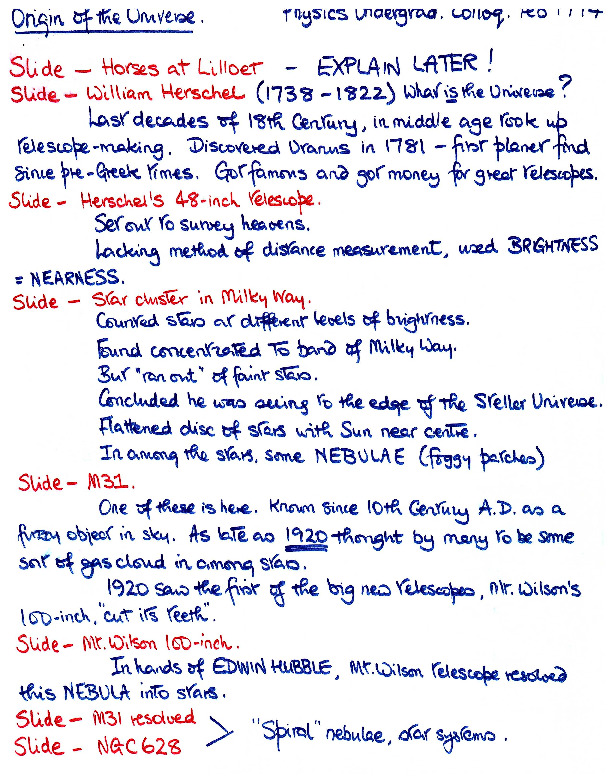 Origin of the Universe. Physics Undergrad. Colloq. Feb 1994
Slide - Horses at Lilloet - EXPLAIN LATER!
Slide - William Herschel (1738-1822) What is the Universe?
Last decades of 18th Century, in middle age took up
telescope-making. Discovered Uranus in 1781 - first planet find
since pre-Greek times. Got famous and got money for great telescopes.
Slide - Herschel's 48-inch telescope.
Set out to survey heavens.
Lacking method of distance measurement, used BRIGHTNESS
= NEARNESS.
Slide - Star cluster in Milky Way.
Counted stars at different levels of brightness.
Found concentrated to band of Milky Way.
But "ran out" of faint stars.
Concluded he was seeing to the edge of the Steller Universe.
Flattened disc of stars with Sun near centre.
In among the stars, some NEBULAE (foggy patches)
Slide - M31.
One of these is here. Known since 10th Century A.D. as a
fuzzy object in sky. As late as 1920 thought by many to be some
sort of gas cloud in among stars.
1920 saw the first of the big new telescopes, Mt. Wilson's
100-inch, "cut its teeth".
Slide - Mt. Wilson 100-inch.
In hands of EDWIN HUBBLE, Mt. Wilson telescope resolved
this NEBULA into stars.
Slide - M31 resolved
Slide - NGC 628 > "Spiral" nebulae, star systems.